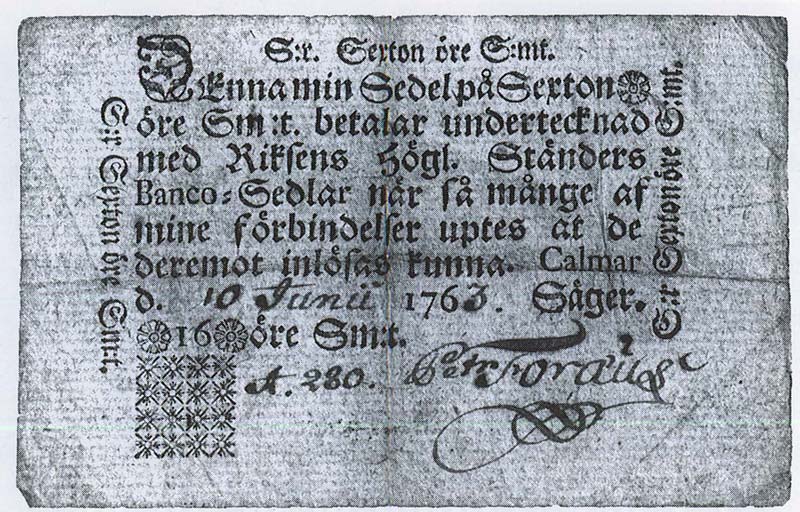 S:r. Sexton öre S:mt.
DEnna min Sedel på Sexton
öre Sm:t. betalar undertecknad
med Riksens Högl. Ständers
Banco-Sedlar när så månge af
mine förbindelser uptes at de
deremot inlösas kunna. Calmar
d. 10 Junii 1763. Säger.
16 öre Sm:t.
A. 280. Petr
S:r Sexton öre S:mt.
S:r Sexton öre S:mt.